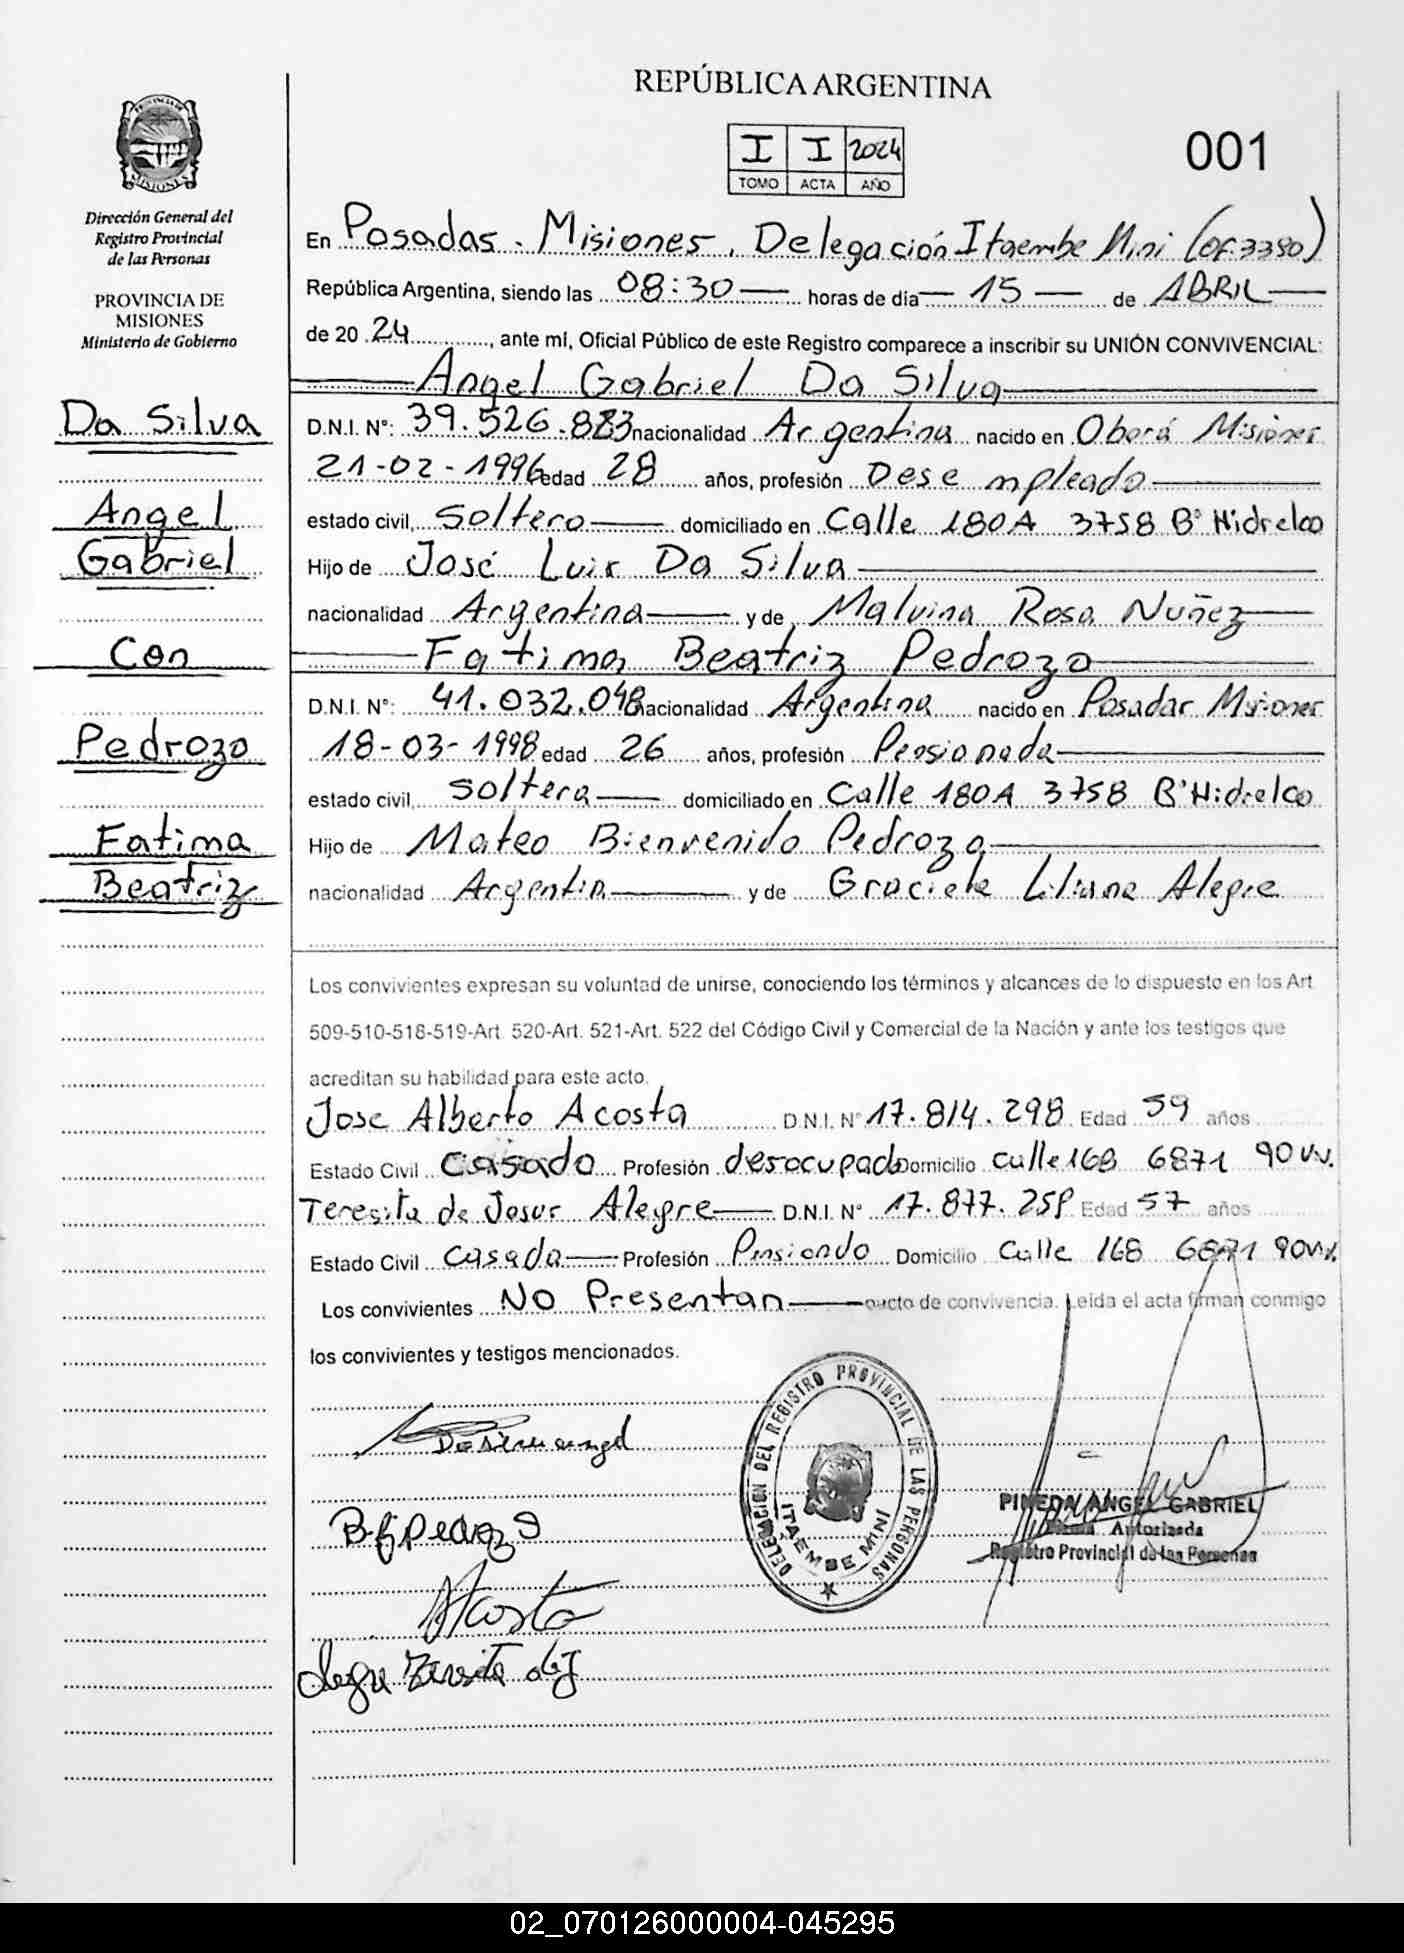 REPÚBLICA ARGENTINA
I I 2024
TOMO ACTA AÑO
001
PROVINCIA DE MISIONES
Dirección General del
Registro Provincial
de las Personas
PROVINCIA DE
MISIONES
Ministerio de Gobierno
Da Silva
Angel
Gabriel
Con
Pedrozo
Fatima
Beatriz
En Posadas. Misiones, Delegación Itaembe Mini (OF.3380)
República Argentina, siendo las 08:30 horas de dia 15 de ABRIL
de 20 24, ante mí, Oficial Público de este Registro comparece a inscribir su UNIÓN CONVIVENCIAL:
Angel Gabriel Da Silva
D.N.I. N°: 39.526.883 nacionalidad Argentina nacido en Oberá Misiones
21-02-1996 edad 28 años, profesión Desempleado
estado civil, Soltero domiciliado en Calle 180A 3758 B° Hidrelco
Hijo de José Luis Da Silva
nacionalidad Argentina y de Malvina Rosa Nuñez
Fatima Beatriz Pedrozo
D.N.I. N°: 41.032.048 nacionalidad Argentina nacido en Posadas Misiones
18-03-1998 edad 26 años, profesión Pensionada
estado civil, Soltera domiciliado en Calle 180A 3758 B° Hidrelco
Hijo de Mateo Bienvenido Pedrozo
nacionalidad Argentin y de Graciela Liliana Alegre
Los convivientes expresan su voluntad de unirse, conociendo los términos y alcances de lo dispuesto en los Art
509-510-518-519-Art. 520-Art. 521-Art. 522 del Código Civil y Comercial de la Nación y ante los testigos que
acreditan su habilidad para este acto.
Jose Alberto Acosta D.N.I. N° 17.814.298 Edad 59 años
Estado Civil Casado Profesión desocupado Domicilio Calle 168 6871 90 Vv.
Teresita de Jesus Alegre D.N.I. N° 17.877.25 Edad 57 años
Estado Civil Casada Profesión Domicilio Calle 168 6871 90 Vv.
Los convivientes No Presentan pacto de convivencia. Leída el acta firman conmigo
los convivientes y testigos mencionados.
B.F. Pedrozo
Acosta
Alegre Teresita de J
DELEGACION DEL REGISTRO PROVINCIAL DE LAS PERSONAS
ITAEMBE MINI
PINEDA ANGEL GABRIEL
Firma Autorizada
Registro Provincial de las Personas
02_070126000004-045295